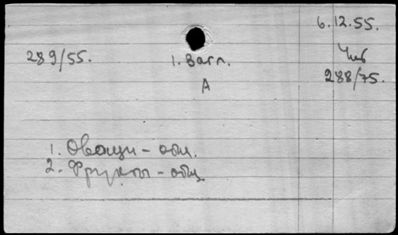 6.12.55.
289/55.
1. Вагл.
Чив
288/75.
А
1. Овощи – общ.
2. Фрукты – общ.